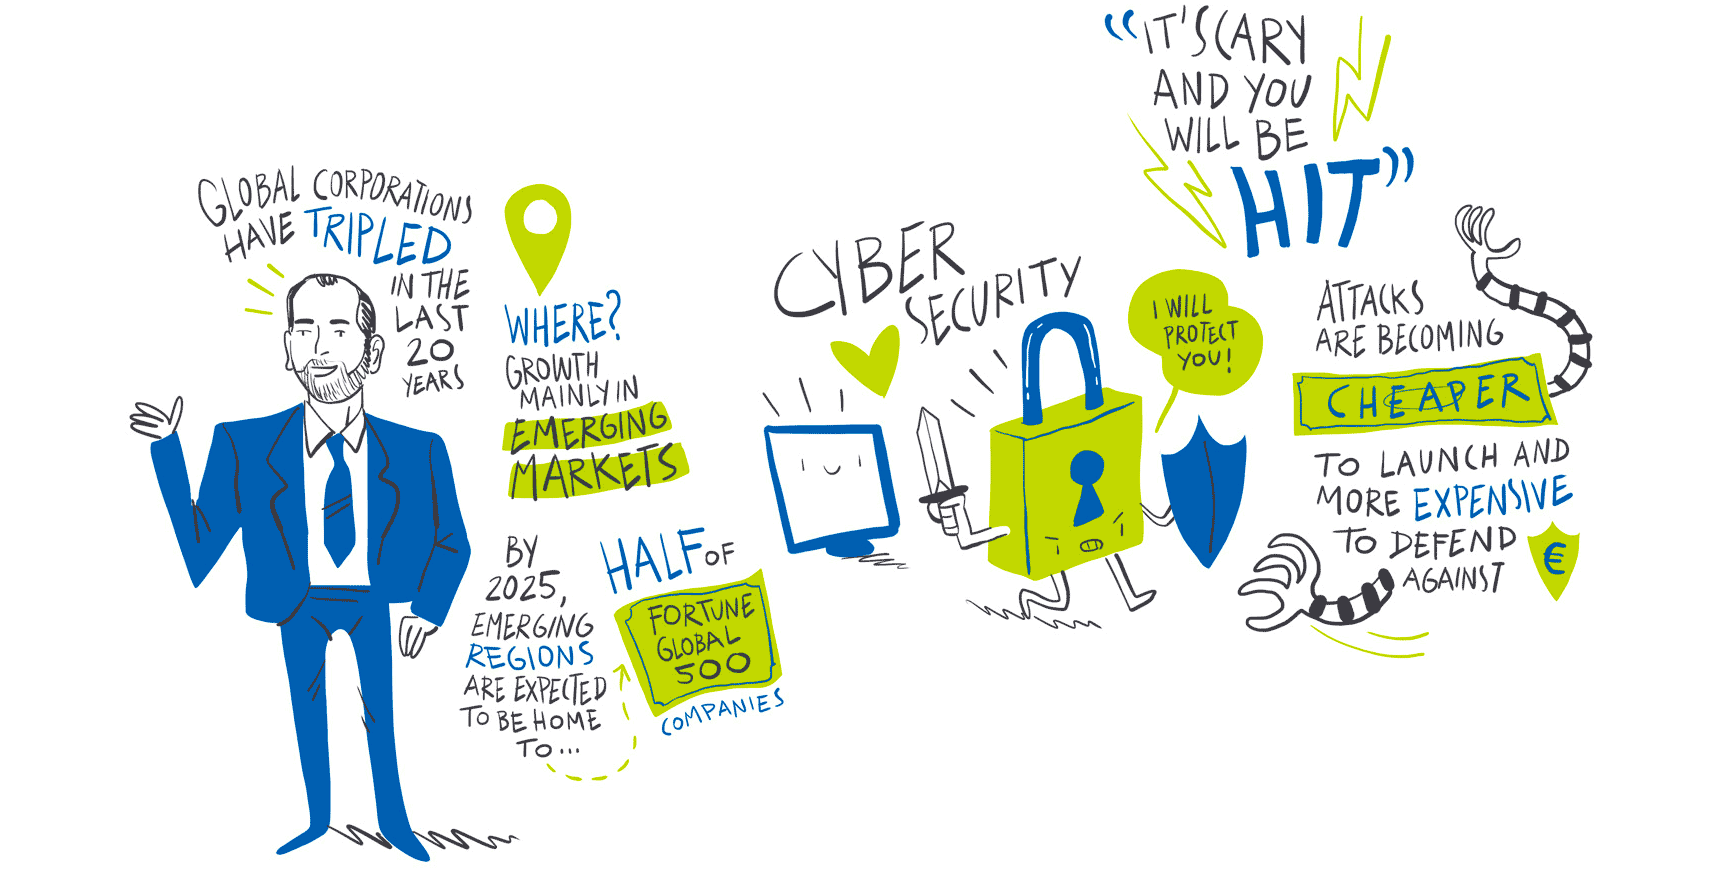 GLOBAL CORPORATIONS
HAVE TRIPLED
IN THE
LAST
20
YEARS
WHERE?
GROWTH
MAINLY IN
EMERGING
MARKETS
BY
2025,
EMERGING
REGIONS
ARE EXPECTED
TO BE HOME
TO...
HALF OF
FORTUNE
GLOBAL
500
COMPANIES
CYBER
SECURITY
I WILL
PROTECT
YOU!
“IT'SCARY
AND YOU
WILL BE
HIT”
ATTACKS
ARE BECOMING
CHEAPER
TO LAUNCH AND
MORE EXPENSIVE
TO DEFEND
AGAINST
€